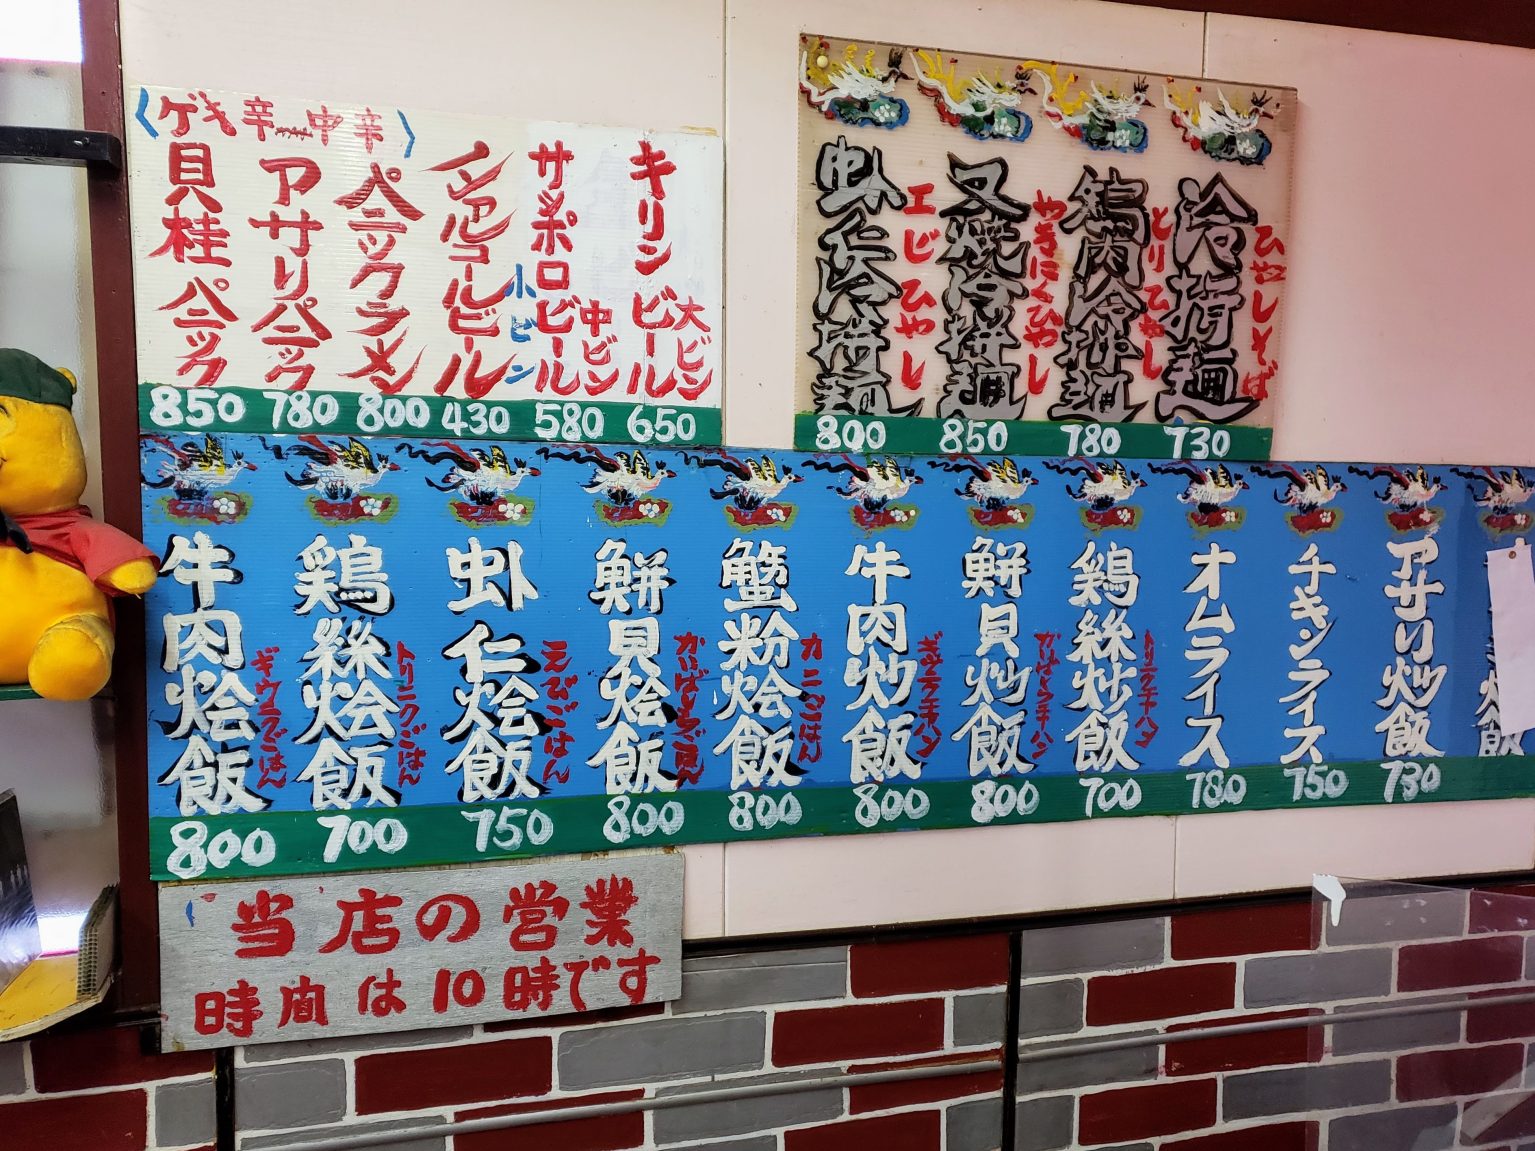 〈ゲキ辛 中辛〉
キリンビール 大ビン 650
サッポロビール 中ビン 580
ノンアルコールビール 小ビン 430
ペニックラメン 800
アサリペニック 780
貝柱ペニック 850
冷拵麺 ひやしそば 730
鶏肉冷拼麺 とりひやし 780
叉焼冷拼麺 やきにくひやし 850
虾仁冷拼麺 エビひやし 800
アサリ炒飯 730
チキンライス 750
オムライス 780
鶏絲炒飯 トリニクチャハン 700
鮮貝炒飯 かいばしらチャハン 800
牛肉炒飯 ギウニクチャハン 800
蟹粉烩飯 カニごはん 800
鮮貝烩飯 かいばしらごはん 800
虾仁烩飯 えびごはん 750
鶏絲烩飯 トリニクごはん 700
牛肉烩飯 ギウニクごはん 800
当店の営業
時間は10時です